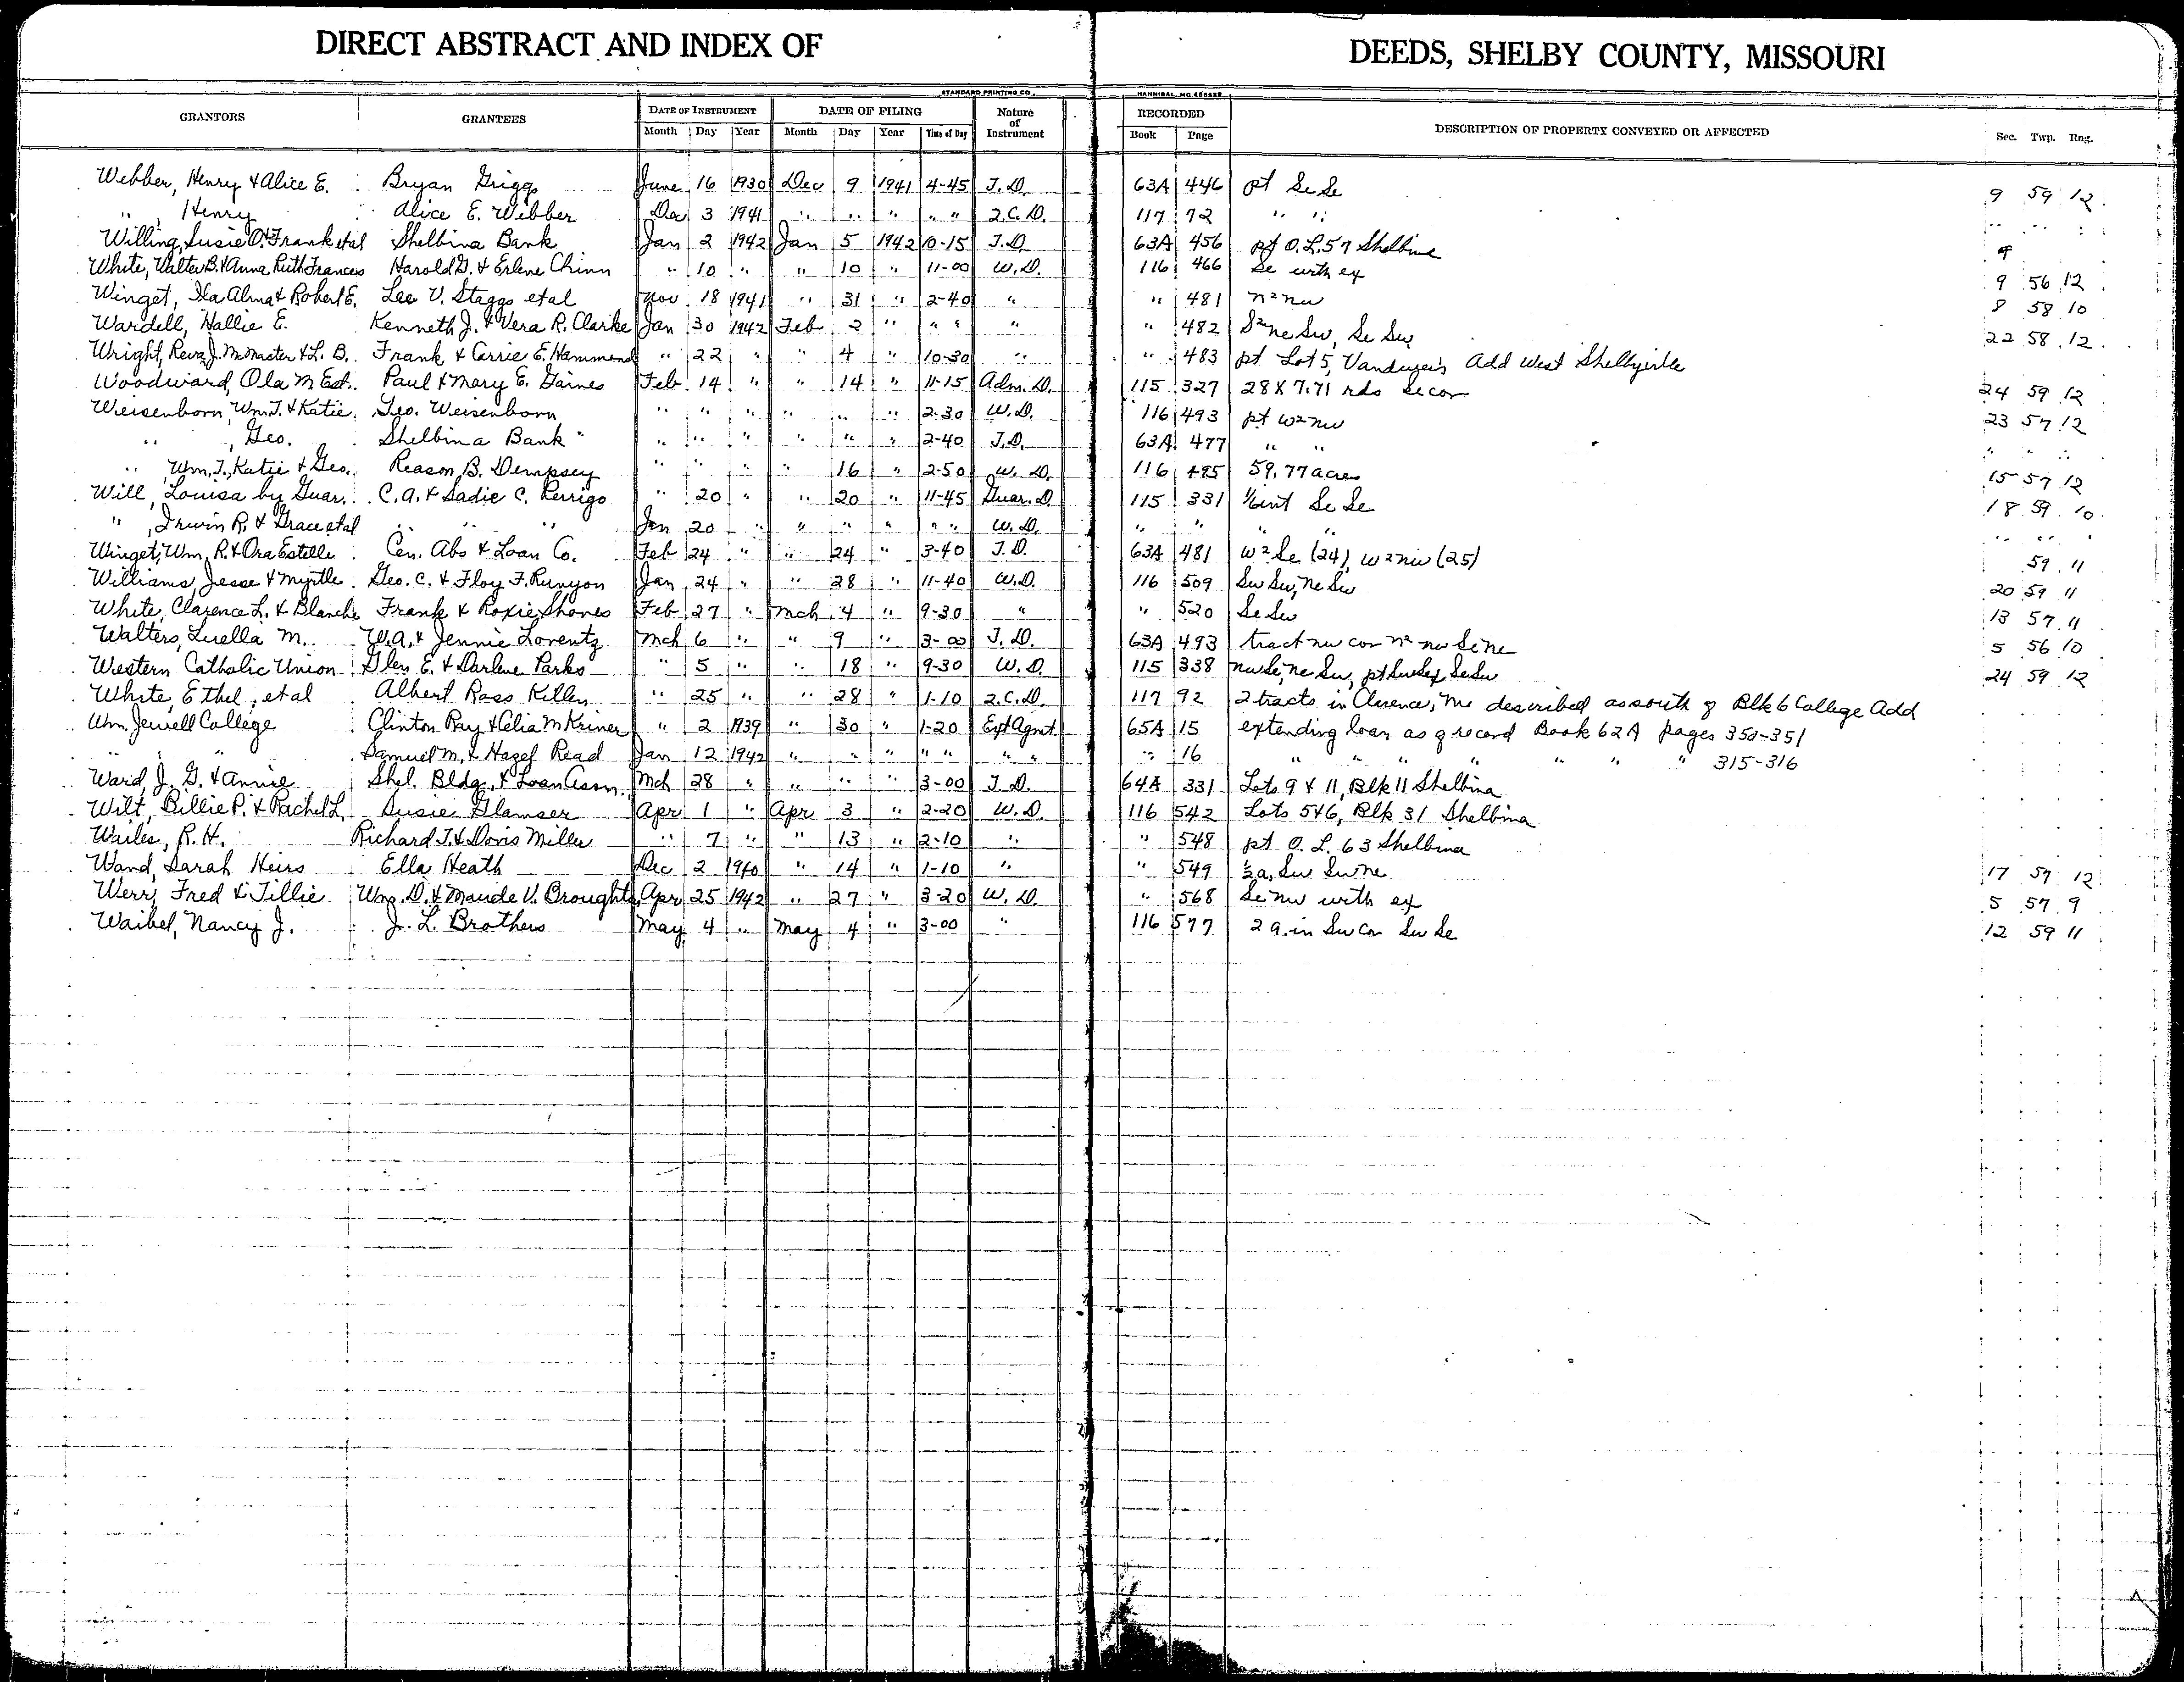 DIRECT ABSTRACT AND INDEX OF DEEDS, SHELBY COUNTY, MISSOURI
STANDARD PRINTING CO. HANNIBAL, MO.
GRANTORS GRANTEES DATE OF INSTRUMENT DATE OF FILING Nature of Instrument RECORDED DESCRIPTION OF PROPERTY CONVEYED OR AFFECTED Sec. Twp. Rng.
Month Day Year Month Day Year Time of Day Book Page
Webber, Henry & Alice E. Bryan Griggs June 16 1930 Dec 9 1941 4-45 T.D. 63A 446 pt Se Se 9 59 12
" , Henry Alice E. Webber Dec 3 1941 " " " " " Q.C.D. 117 72 " " " " "
Willing, Susie O. & Frank etal Shelbina Bank Jan 2 1942 Jan 5 1942 10-15 T.D. 63A 456 pt O.L. 57 Shelbina
White, Walter B. & Anna Ruth Frances Harold G. & Erlene Chinn " 10 " " 10 " 11-00 W.D. 116 466 Se with ex 9 56 12
Winget, Ila Alma & Robert E. Lee V. Staggs etal Nov 18 1941 " 31 " 2-40 " " 481 N2 Nw 8 58 10
Wardell, Hallie E. Kenneth J. & Vera R. Clarke Jan 30 1942 Feb 2 " " " " " 482 S2 Ne Sw, Se Sw 22 58 12
Wright, Reva J. McMaster & L. B. Frank & Carrie E. Hammond " 22 " " 4 " 10-30 " " 483 pt Lot 5, Vanduzer's Add West Shelbyville
Woodward, Ola M Est. Paul & Mary E. Gaines Feb 14 " " 14 " 11-15 Adm. D. 115 327 28 X 7.71 rds Se cor 24 59 12
Weisenborn, Wm. T. & Katie Geo. Weisenborn " " " " " " 2-30 W.D. 116 493 pt W2 Nw 23 57 12
" , Geo. Shelbina Bank " " " " " " 2-40 T.D. 63A 477 " " " " "
" , Wm. T., Katie & Geo. Reason B. Dempsey " " " " 16 " 2-50 W.D. 116 495 59.77 acres 15 57 12
Will, Louisa by Guar. C.A. & Sadie C. Perrigo " 20 " " 20 " 11-45 Guar. D. 115 331 1/6 int Se Se 18 59 10
" , Irwin R. & Grace etal " " " Jan 20 " " " " " " W.D. " " " " " " "
Winget, Wm. R. & Ora Estelle Cen. Abs & Loan Co. Feb 24 " " 24 " 3-40 T.D. 63A 481 W2 Se (24), W2 Nw (25) 59 11
Williams, Jesse & Myrtle Geo. C. & Floy F. Runyon Jan 24 " " 28 " 11-40 W.D. 116 509 Sw Sw, Ne Sw 20 59 11
White, Clarence L. & Blanche Frank & Roxie Shoves Feb 27 " Mch 4 " 9-30 " " 520 Se Sw 13 57 11
Walters, Luella M. W.A. & Jennie Lorentz Mch 6 " " 9 " 3-00 T.D. 63A 493 tract Nw cor N2 Nw Se Ne 5 56 10
Western Catholic Union Glen E. & Darlene Parks " 5 " " 18 " 9-30 W.D. 115 338 Nw Se, Ne Sw, pt Sw Se, Se Sw 24 59 12
White, Ethel, etal Albert Ross Killen " 25 " " 28 " 1-10 Q.C.D. 117 92 2 tracts in Clarence, Mo described as south of Blk 6 College Add
Wm. Jewell College Clinton Ray & Celia M Kriner " 2 1939 " 30 " 1-20 Ext Agmt. 65A 15 extending loan as of record Book 62A pages 350-351
" " " Samuel M. & Hazel Read Jan 12 1942 " " " " " " " " 16 " " " " " " " 315-316
Ward, J. G. & Annie Shel. Bldg. & Loan Assn. Mch 28 " " " " 3-00 T.D. 64A 331 Lots 9 & 11, Blk 11 Shelbina
Wilt, Billie P. & Rachel L. Susie Glamser Apr 1 " Apr 3 " 2-20 W.D. 116 542 Lots 5 & 6, Blk 31 Shelbina
Wailes, R. H. Richard T. & Doris Miller " 7 " " 13 " 2-10 " " 548 pt O. L. 63 Shelbina
Wand, Sarah Heirs Ella Heath Dec 2 1940 " 14 " 1-10 " " 549 1/2 a. Sw Sw Ne 17 57 12
Werr, Fred & Tillie Wm. D. & Maude V. Broughts Apr 25 1942 " 27 " 3-20 W.D. " 568 Se Nw with ex 5 57 9
Waibel, Nancy J. J. L. Brothers May 4 " May 4 " 3-00 " 116 577 2 a. in Sw Cor Sw Se 12 59 11